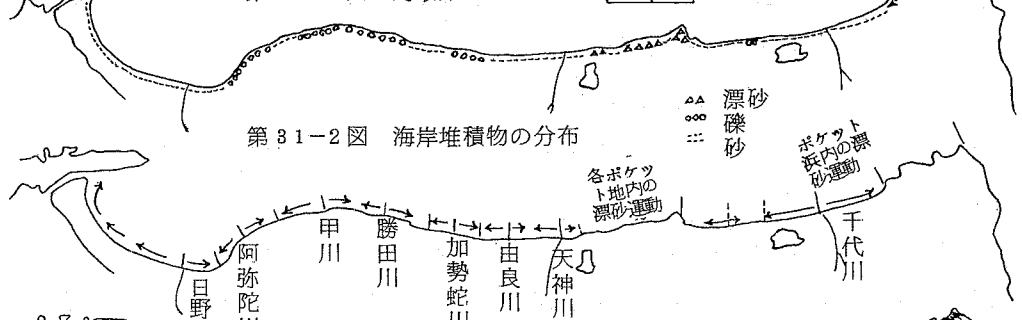 漂砂
礫
砂
第31-2図 海岸堆積物の分布
各ポケッ
ト地内の
漂砂運動
ポケット
浜内の漂
砂運動
日野
阿弥陀川
甲川
勝田川
加勢蛇川
由良川
天神川
千代川